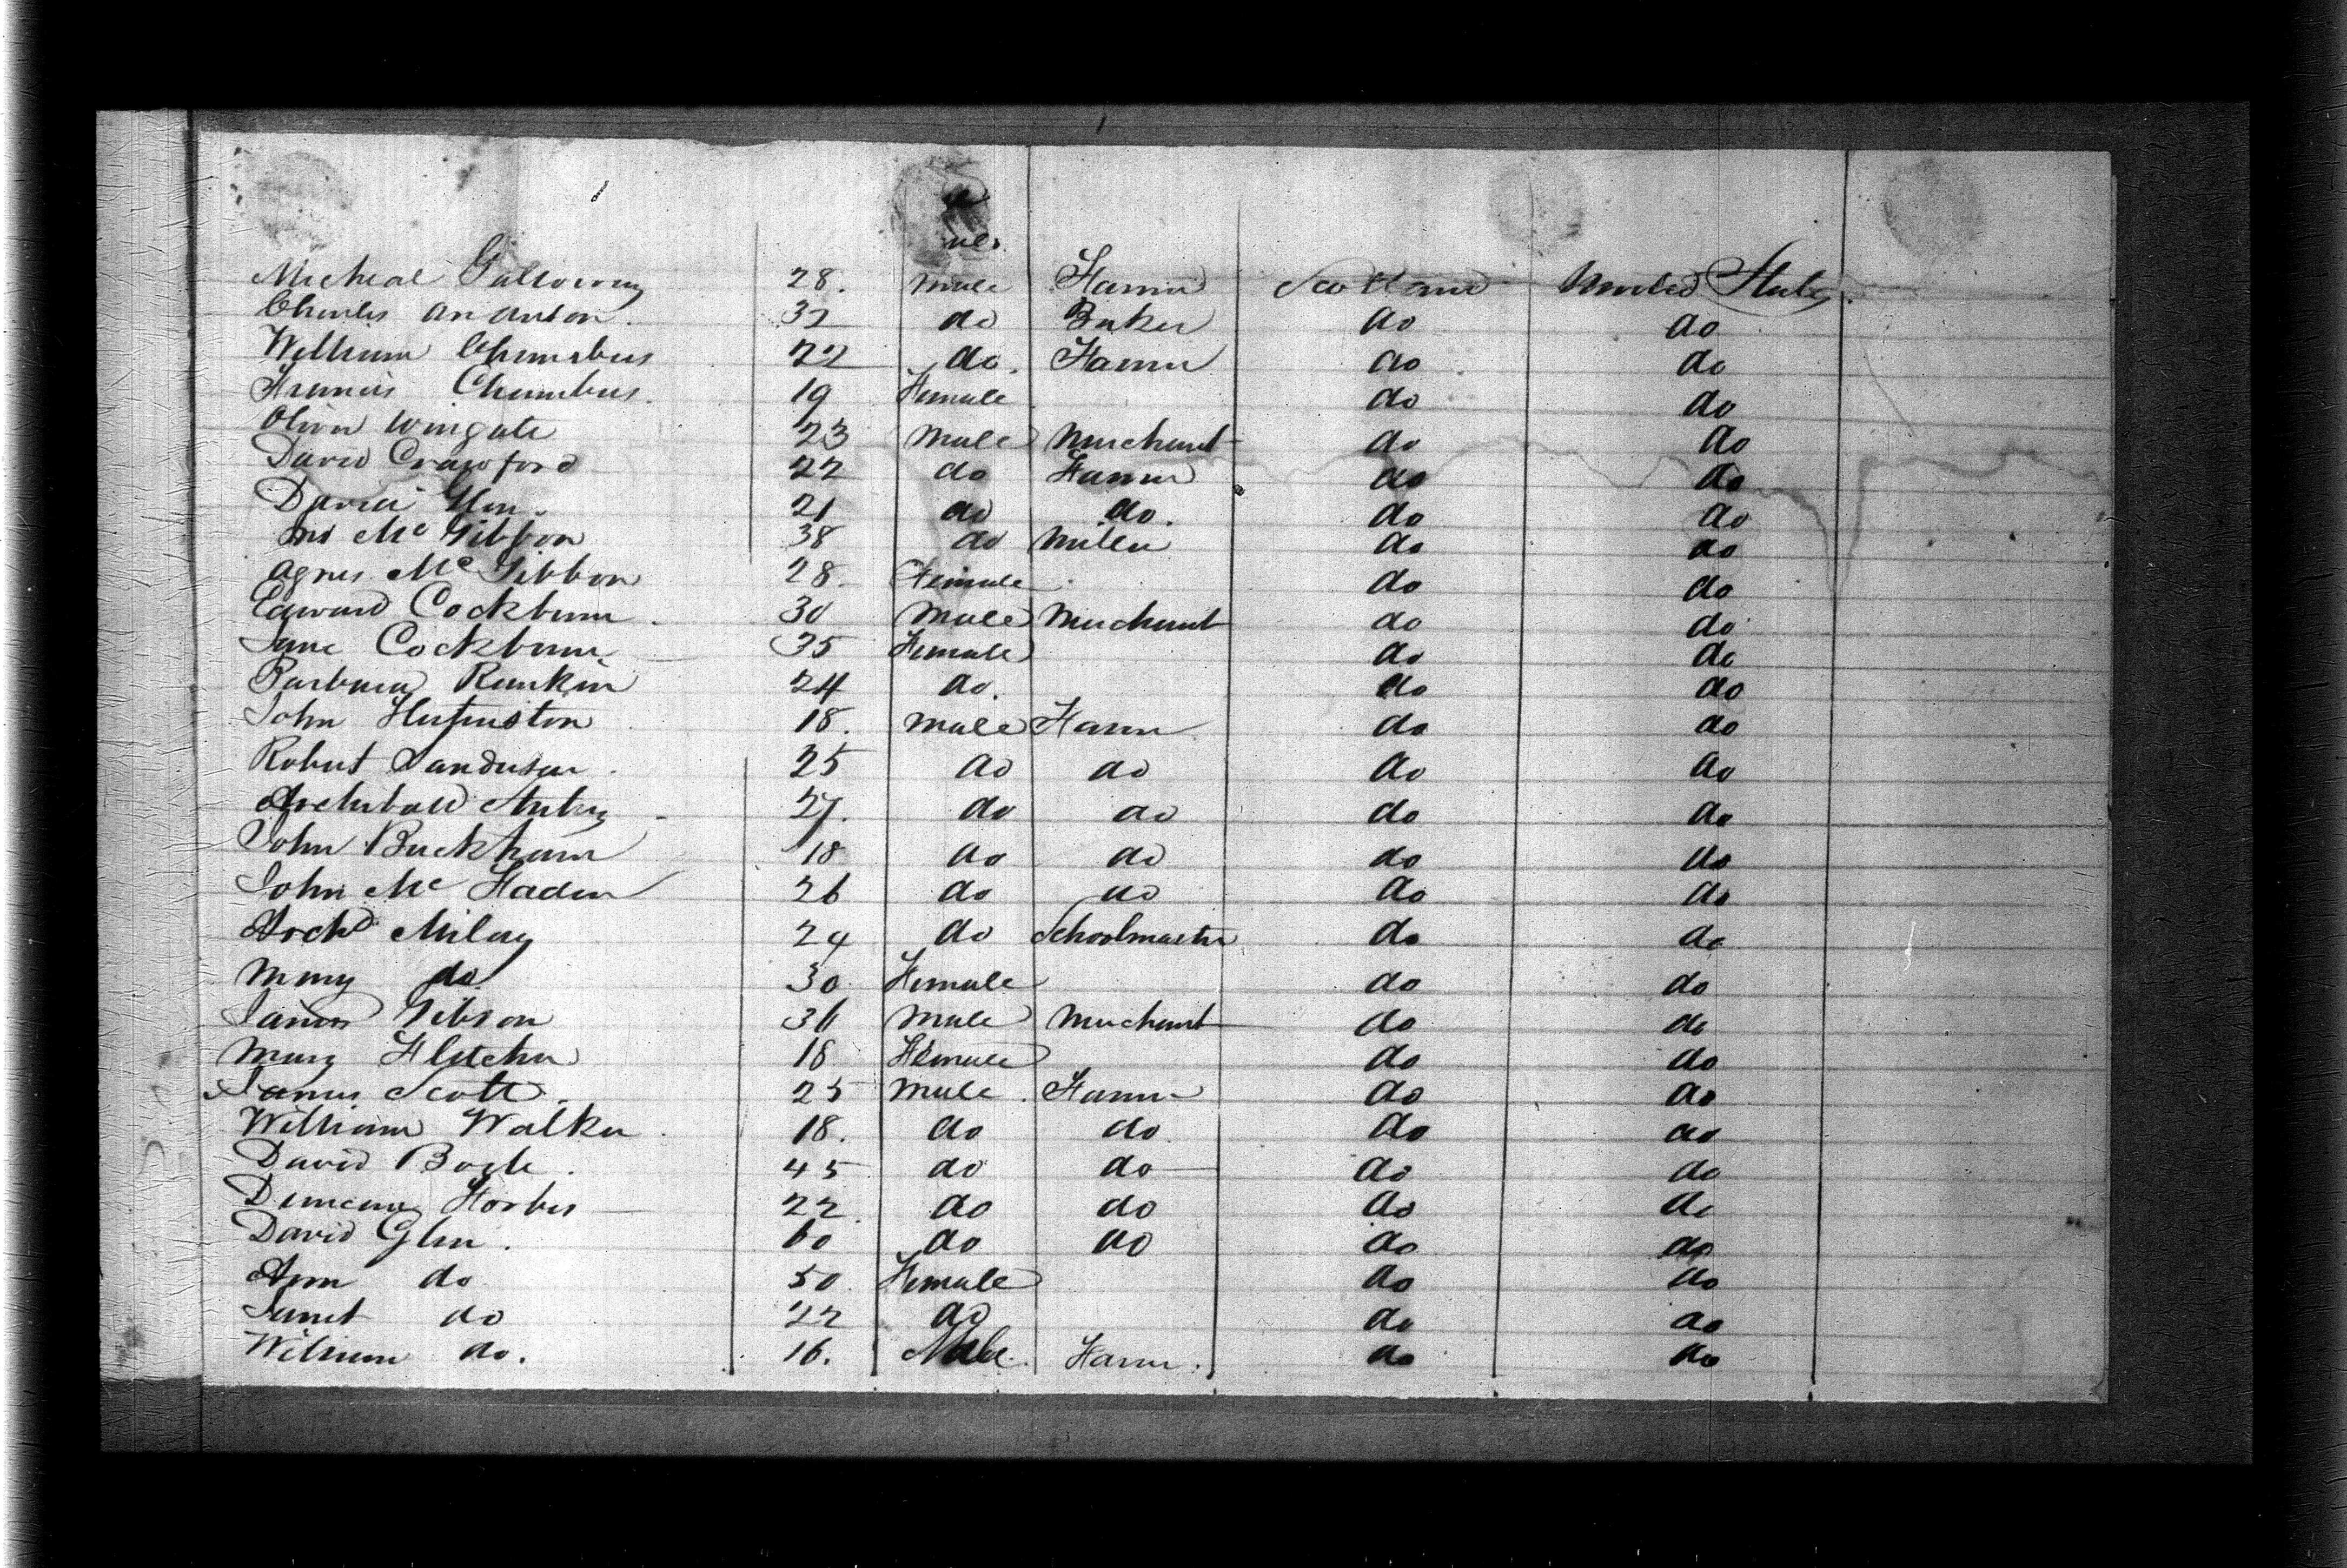 Micheal Galloway 28. male Farmer Scotland United States.
Charles 32 do Baker do do
William Chambers 22 do. Farmer do do
Francis Chambers. 19 Female do do
Oliver Wingate 23 male Merchant do do
David Crawford 22 do Farmer do do
David 21 do do. do do
Mc Gibbon 38 do Miller do do
Agnes Mc Gibbon 28. Female do do
Edward Cockburn 30 male Merchant do do
Jane Cockburn 35 Female do do
Barbara Rankin 24 do. do do
John 18. male Farmer do do
Robert Sanderson 25 do do do do
Archibald 27. do do do do
John Buckham 18 do do do do
John Mc Faden 26 do do do do
Archd. Milay 24 do Schoolmaster do do
Mary do 30 Female do do
James Gibson 36 male Merchant do do
Mary Fletcher 18 Female do do
James Scott 25 male. Farmer do do
William Walker 18. do do do do
David Bogle. 45 do do do do
Duncan Forbes 22 do do do do
David Glen. 60 do do do do
Ann do 50 Female do do
Janet do 22 do do do
William do. 16. Male Farmer. do do